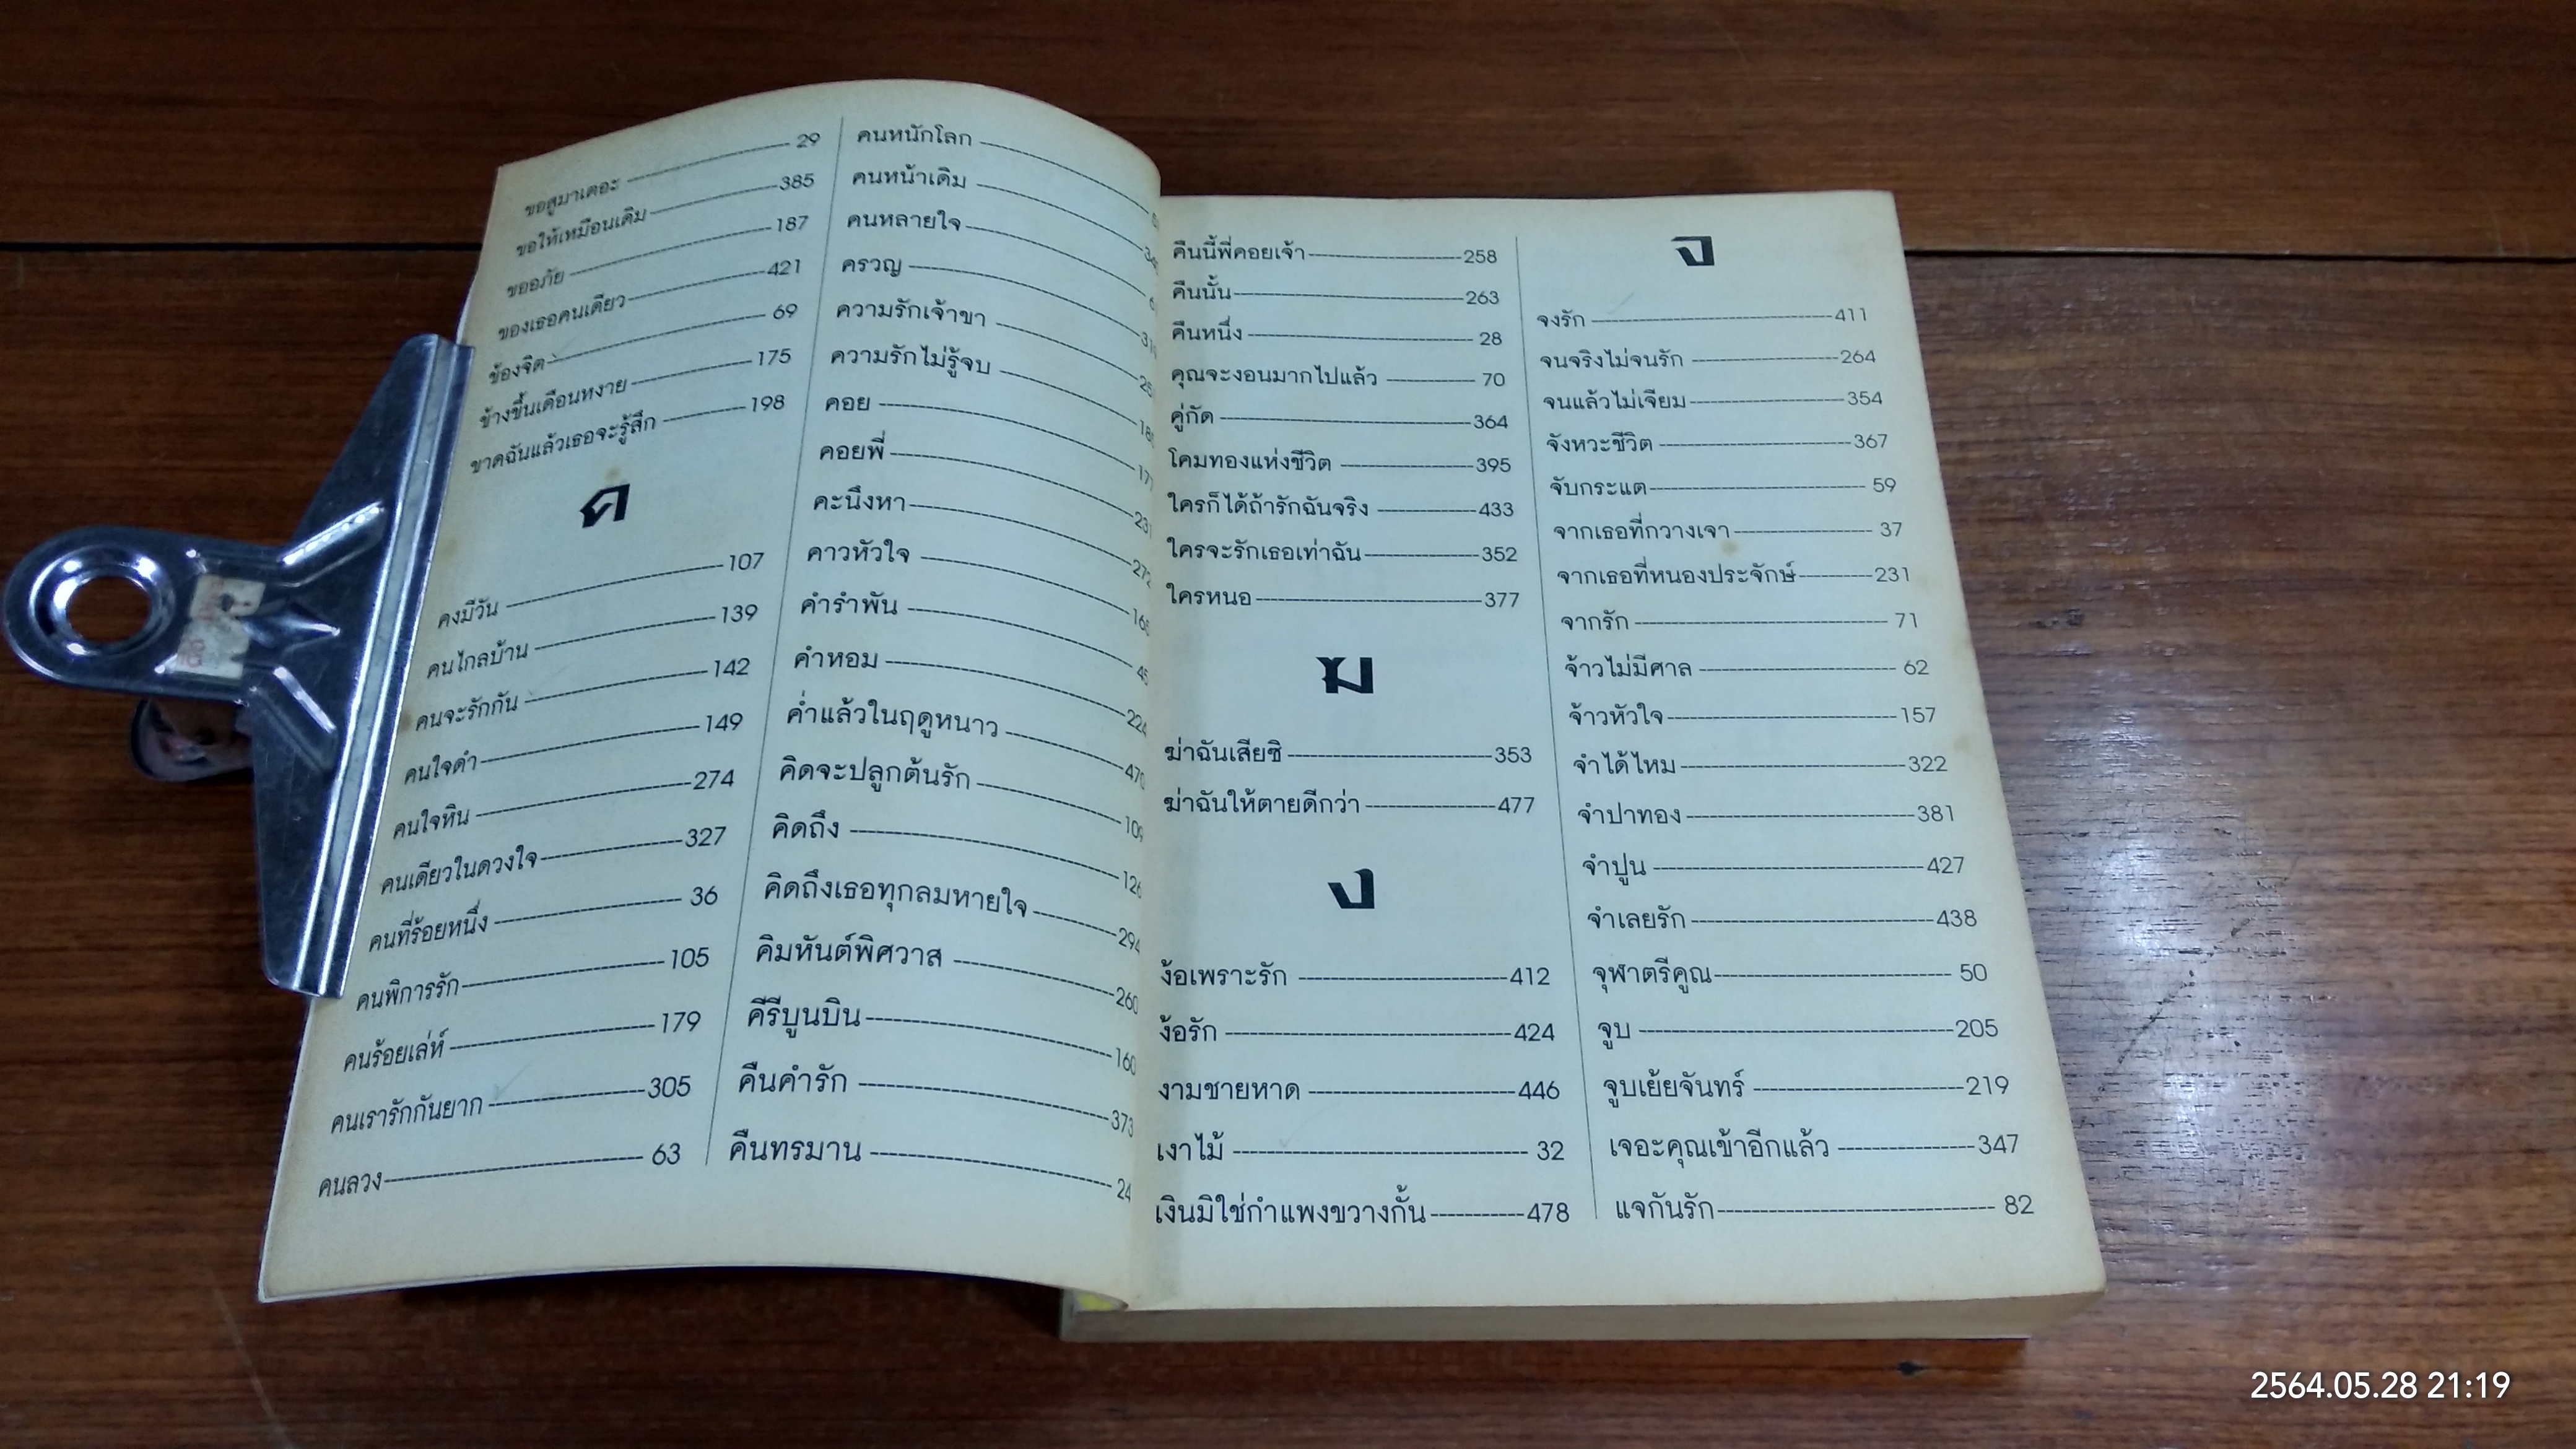 ขอสูมาเตอะ 29
ขอให้เหมือนเดิม 385
ขออภัย 187
ของเธอคนเดียว 421
ข้องจิต 69
ข้างขึ้นเดือนหงาย 175
ขาดฉันแล้วเธอจะรู้สึก 198
ค
คงมีวัน 107
คนไกลบ้าน 139
คนจะรักกัน 142
คนใจดำ 149
คนใจหิน 274
คนเดียวในดวงใจ 327
คนที่ร้อยหนึ่ง 36
คนพิการรัก 105
คนร้อยเล่ห์ 179
คนเรารักกันยาก 305
คนลวง 63
คนหนักโลก
คนหน้าเดิม
คนหลายใจ
ครวญ
ความรักเจ้าขา
ความรักไม่รู้จบ
คอย
คอยพี่
คะนึงหา
คาวหัวใจ
คำรำพัน
คำหอม
ค่ำแล้วในฤดูหนาว 470
คิดจะปลูกต้นรัก 109
คิดถึง 126
คิดถึงเธอทุกลมหายใจ 294
คิมหันต์พิศวาส 260
คีรีบูนบิน 160
คืนคำรัก 373
คืนทรมาน 24
คืนนี้พี่คอยเจ้า 258
คืนนั้น 263
คืนหนึ่ง 28
คุณจะงอนมากไปแล้ว 70
คู่กัด 364
โคมทองแห่งชีวิต 395
ใครก็ได้ถ้ารักฉันจริง 433
ใครจะรักเธอเท่าฉัน 352
ใครหนอ 377
ฆ
ฆ่าฉันเสียซิ 353
ฆ่าฉันให้ตายดีกว่า 477
ง
ง้อเพราะรัก 412
ง้อรัก 424
งามชายหาด 446
เงาไม้ 32
เงินมิใช่กำแพงขวางกั้น 478
จ
จงรัก 411
จนจริงไม่จนรัก 264
จนแล้วไม่เจียม 354
จังหวะชีวิต 367
จับกระแต 59
จากเธอที่กวางเจา 37
จากเธอที่หนองประจักษ์ 231
จากรัก 71
จ้าวไม่มีศาล 62
จ้าวหัวใจ 157
จำได้ไหม 322
จำปาทอง 381
จำปูน 427
จำเลยรัก 438
จุฬาตรีคูณ 50
จูบ 205
จูบเย้ยจันทร์ 219
เจอะคุณเข้าอีกแล้ว 347
แจกันรัก 82
2564.05.28 21:19